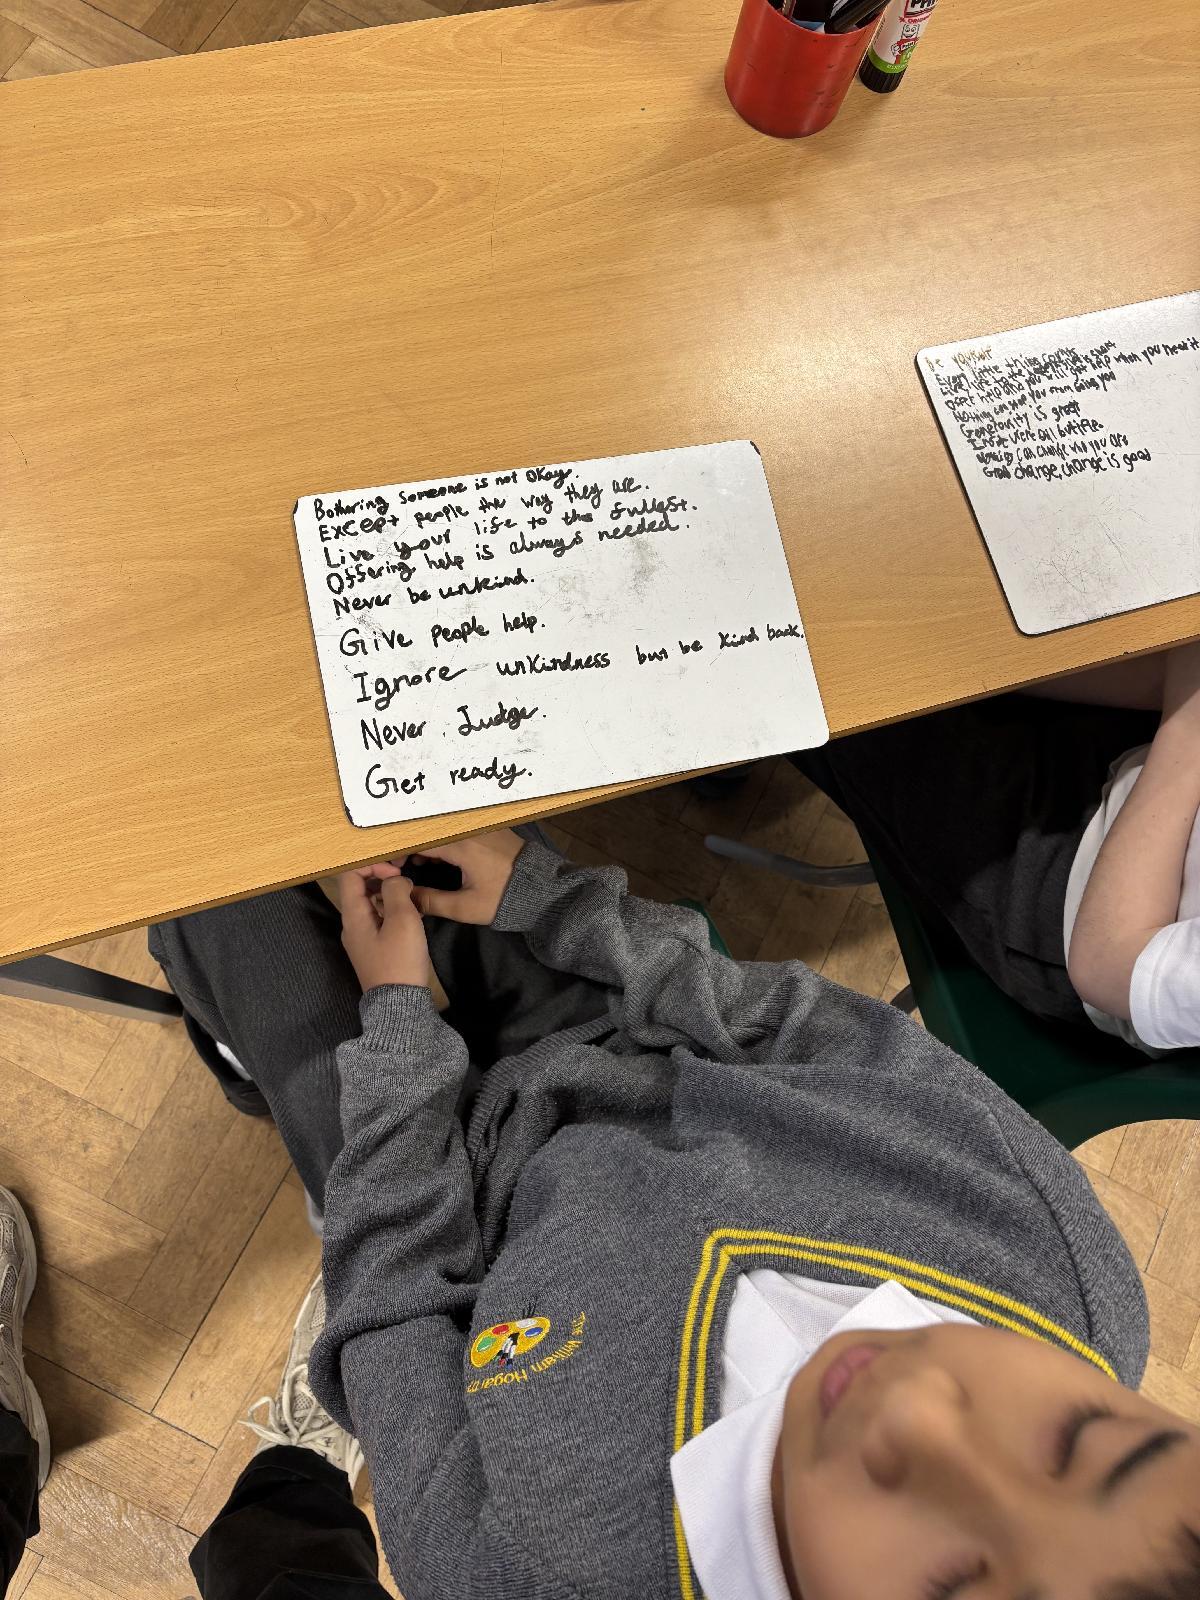 Bothering someone is not okay.
Except people the way they are.
Live your life to the fullest.
Offering help is always needed.
Never be unkind.
Give people help.
Ignore unkindness but be kind back.
Never Judge.
Get ready.
Be yourself
Even little thing counts
Live life to the
offer help and you will get help when you need it
Nothing can stop you from being you
Generosity is great
Inside were all
can change who you are
Good change, change is good
The William Hogarth
Pritt